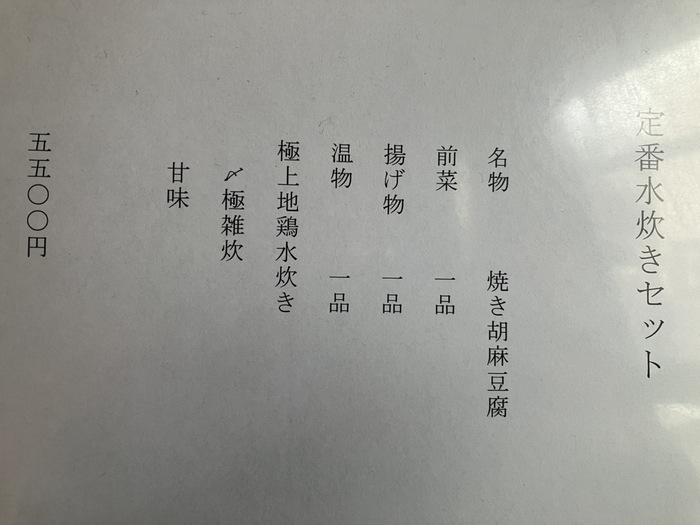 定番水炊きセット
名物 焼き胡麻豆腐
前菜 一品
揚げ物 一品
温物 一品
極上地鶏水炊き
〆極雑炊
甘味
五五〇〇円